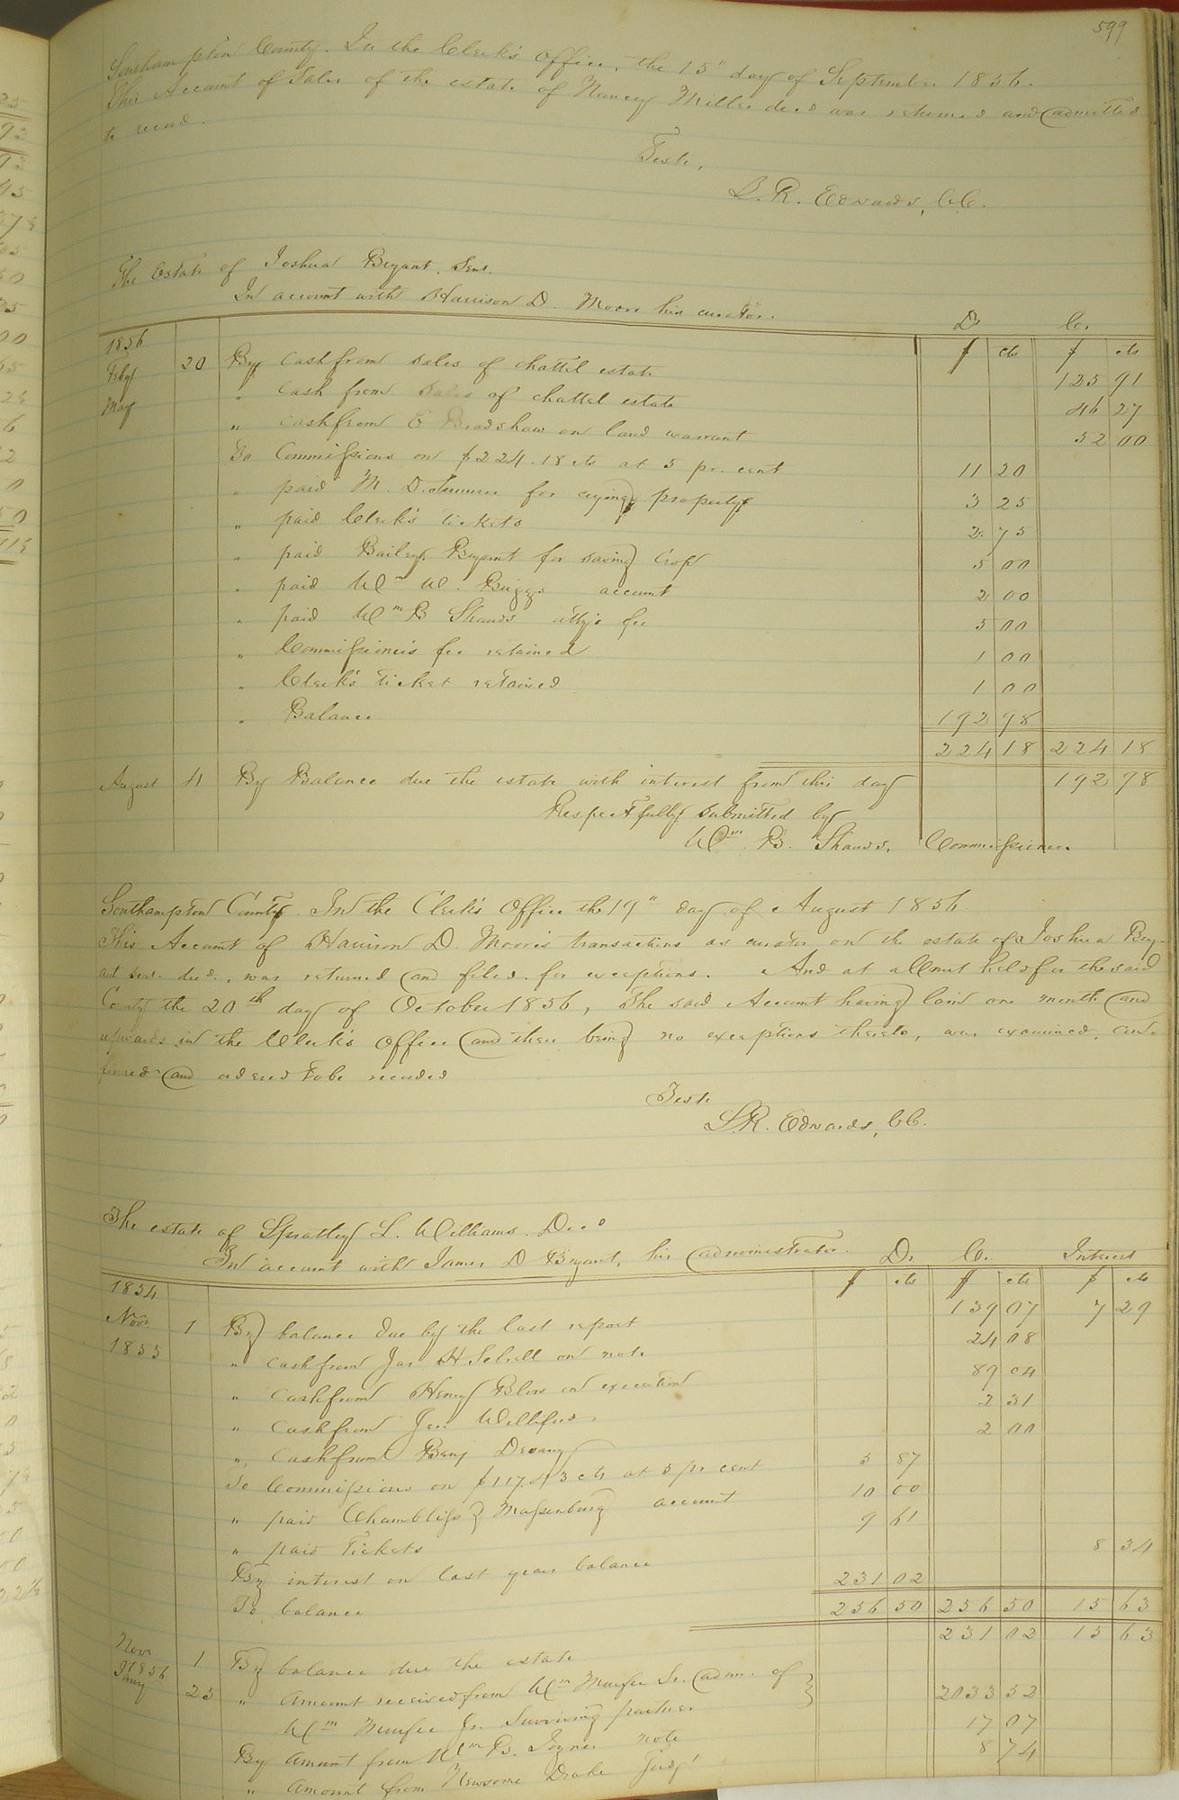 599
Southampton County. In the Clerk's Office, the 15" day of September 1856.
This Account of Sales of the estate of Nancy Miller decd was returned and admitted
to record.
Teste,
L. R. Edwards, CC.
The Estate of Joshua Bryant, Senr.
In account with Harrison D. Moore his curator.
Dr Cr.
1856 $ cts $ cts
Feby 20 By Cash from sales of chattel estate 125 91
May " Cash from sales of chattel estate 46 27
" Cash from E Bradshaw on land warrant 52 00
To Commissions on $224.18 cts at 5 pr. cent 11 20
" paid M. D. for crying property 3 25
" paid Clerk's tickets 2 75
" paid Bailey Bryant for saving Crop 5 00
" paid Wm W. Briggs account 2 00
" paid Wm B Shands atty's fee 5 00
" Commissioner's fee retained 1 00
" Clerk's ticket retained 1 00
" Balance 192 98
224 18 224 18
August 4 By Balance due the estate with interest from this day 192 98
Respectfully submitted by
Wm. B. Shands, Commissioner.
Southampton County. In the Clerk's Office the 19" day of August 1856
This Account of Harrison D. Moore's transactions as curator on the estate of Joshua Bry-
ant Senr. decd., was returned and filed for exceptions. And at a Court held for the said
County the 20th day of October 1856, The said Account having lain one month and
upwards in the Clerk's Office and there being no exceptions thereto, was examined, con-
firmed and ordered to be recorded
Teste
L. R. Edwards, CC.
The estate of Spratley L. Williams Decd
In account with James D Bryant, his administrator.
Dr Cr. Interest
1854 $ cts $ cts $ cts
Nov. 1 By balance due by the last report 139 07 7 29
1855 " cash from Jas H. on note 24 08
" Cash from Henry Blow on execution 89 04
" Cash from Jno. Williford 2 31
" Cash from Benj Devany 2 00
To Commissions on $117.43 cts at 5 pr cent 5 87
" paid Chambliss & Massenburg account 10 00
" paid Tickets 9 61
By interest on last years balance 8 34
To balance 231 02
256 50 256 50 15 63
Nov 1 By balance due the estate 231 02 15 63
1856
Jany 25 " Amount received from Wm Murfee Sr. adm. of
Wm Murfee Jr. Surviving partner 2033 52
By Amount from Wm B. Joyner note 17 07
" Amount from Newsome Drake Judgt 8 74